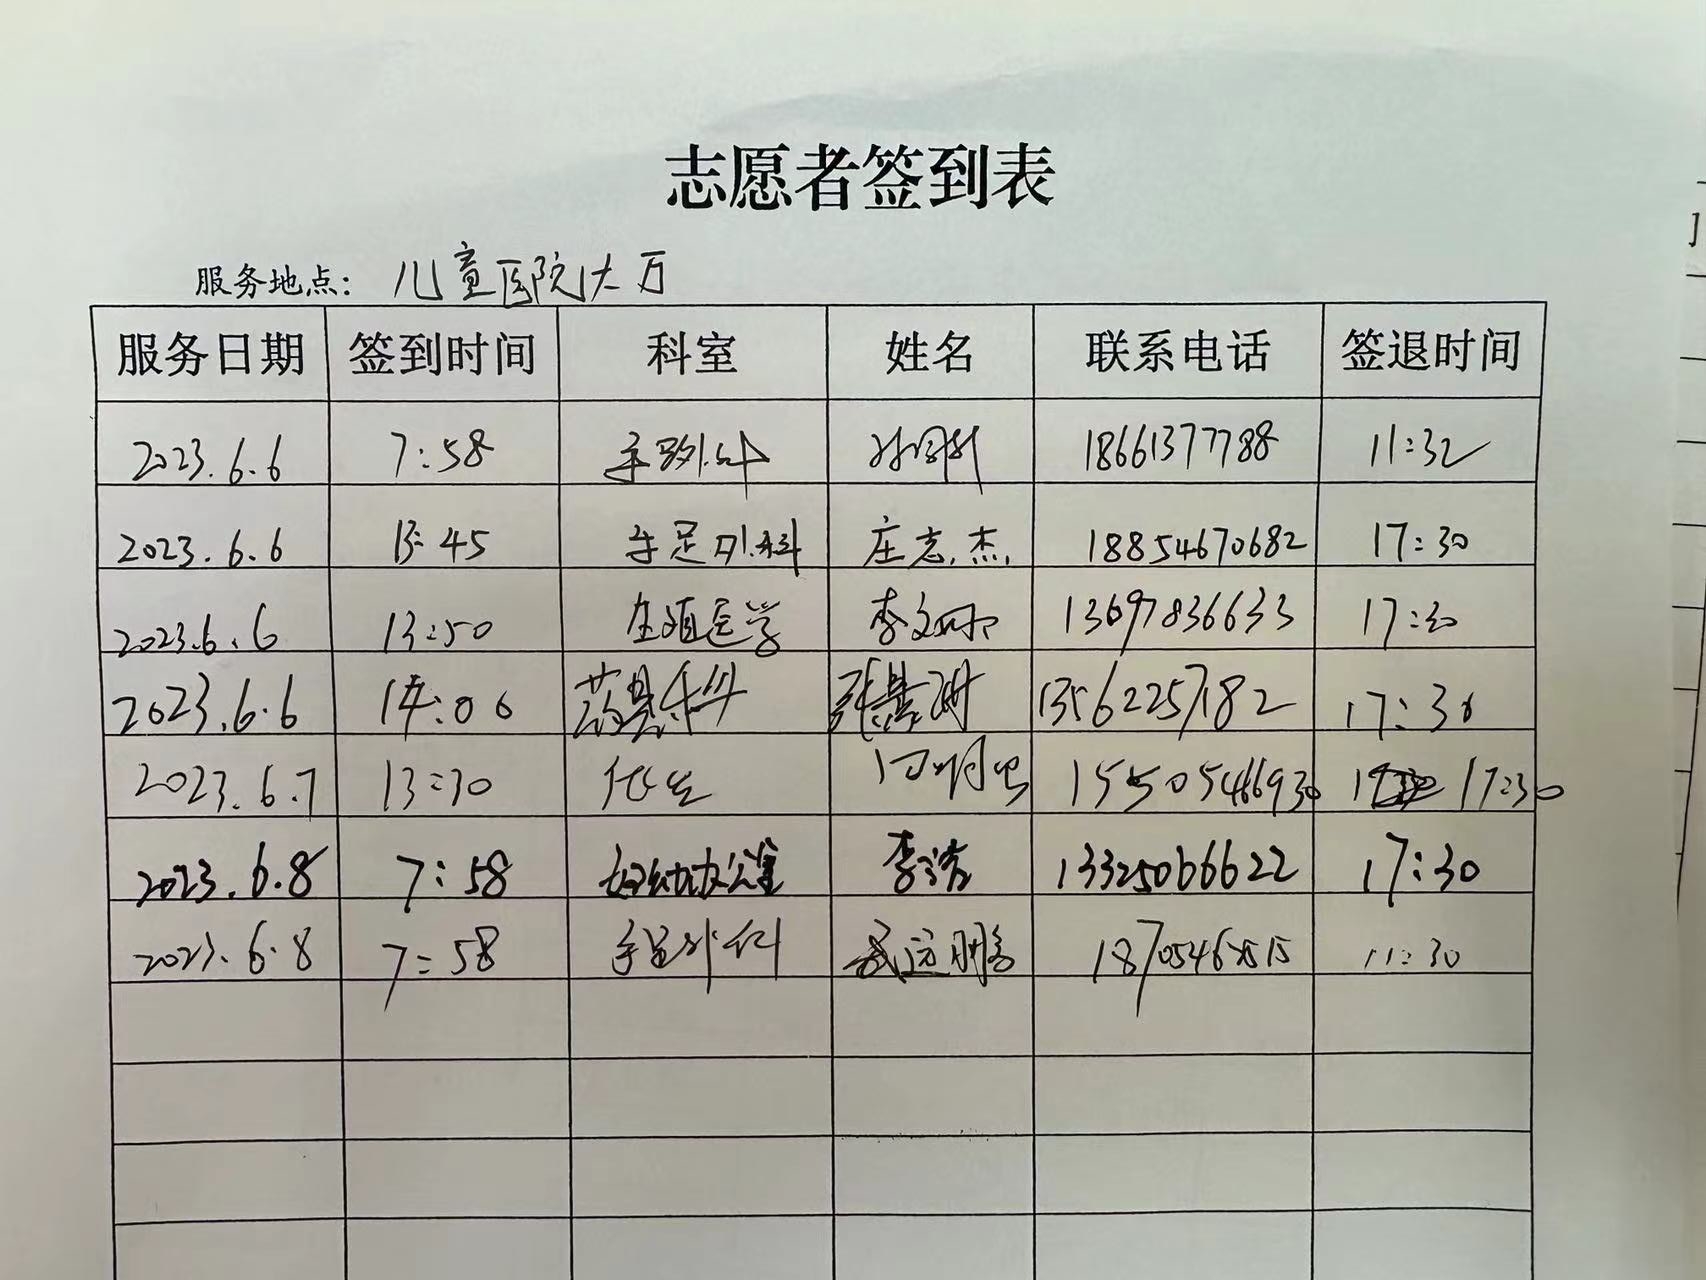 志愿者签到表
服务地点： 儿童医院大厅
服务日期 签到时间 科室 姓名 联系电话 签退时间
2023.6.6 7:58 手足外科 18661377788 11:32
2023.6.6 13:45 手足外科 庄志杰 18854670682 17:30
2023.6.6 13:50 生殖医学 李文 13697836633 17:30
2023.6.6 14:06 药具科 张景 13562257182 17:30
2023.6.7 13:30 15505466930 17:30
2023.6.8 7:58 妇幼办公室 李涛 13325066622 17:30
2023.6.8 7:58 手足外科 11:30